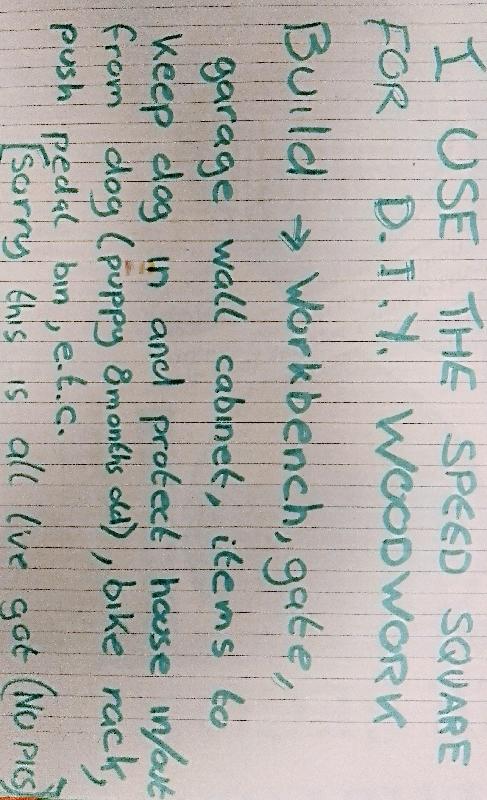 I USE THE SPEED SQUARE
FOR D.I.Y. WOODWORK
Build → Workbench, gate,
garage wall cabinet, items to
keep dog in and protect house in/out
from dog (puppy 8months old), bike rack,
push pedal bin, e.t.c.
[Sorry this is all I've got (No PICS)